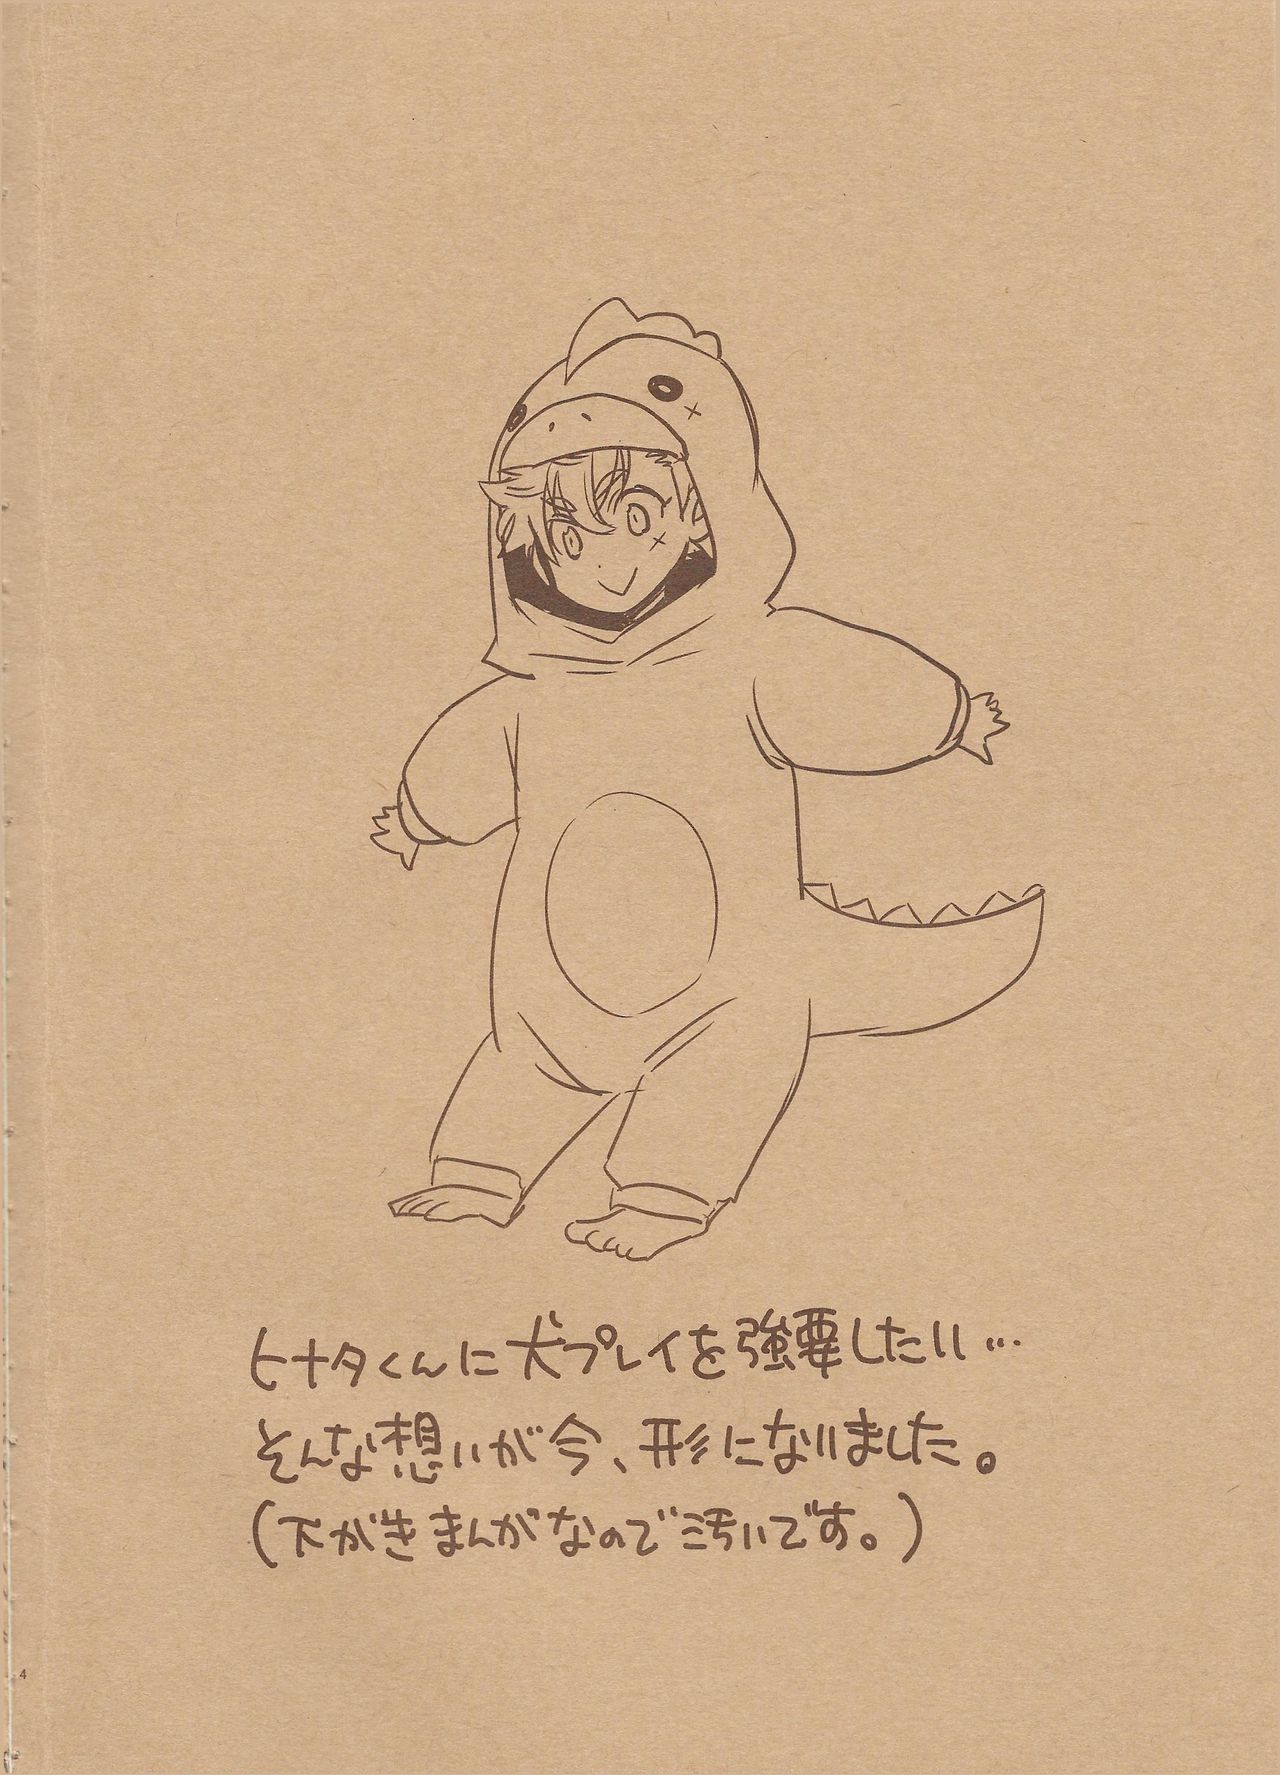 ヒナタくんに犬プレイを強要したい…
そんな想いが今、形になりました。
(下がきまんがなので汚いです。)
4